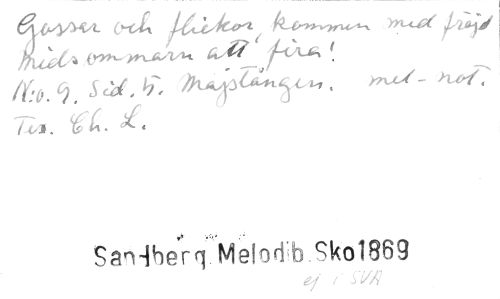 Gossar och flickor, kommen med fröjd
midsommarn att fira!
N:o. 9. Sid. 5. Majstången. mel-not.
Tex. Ch. L.
Sandberg. Melodib. Sko1869
ej i SVA